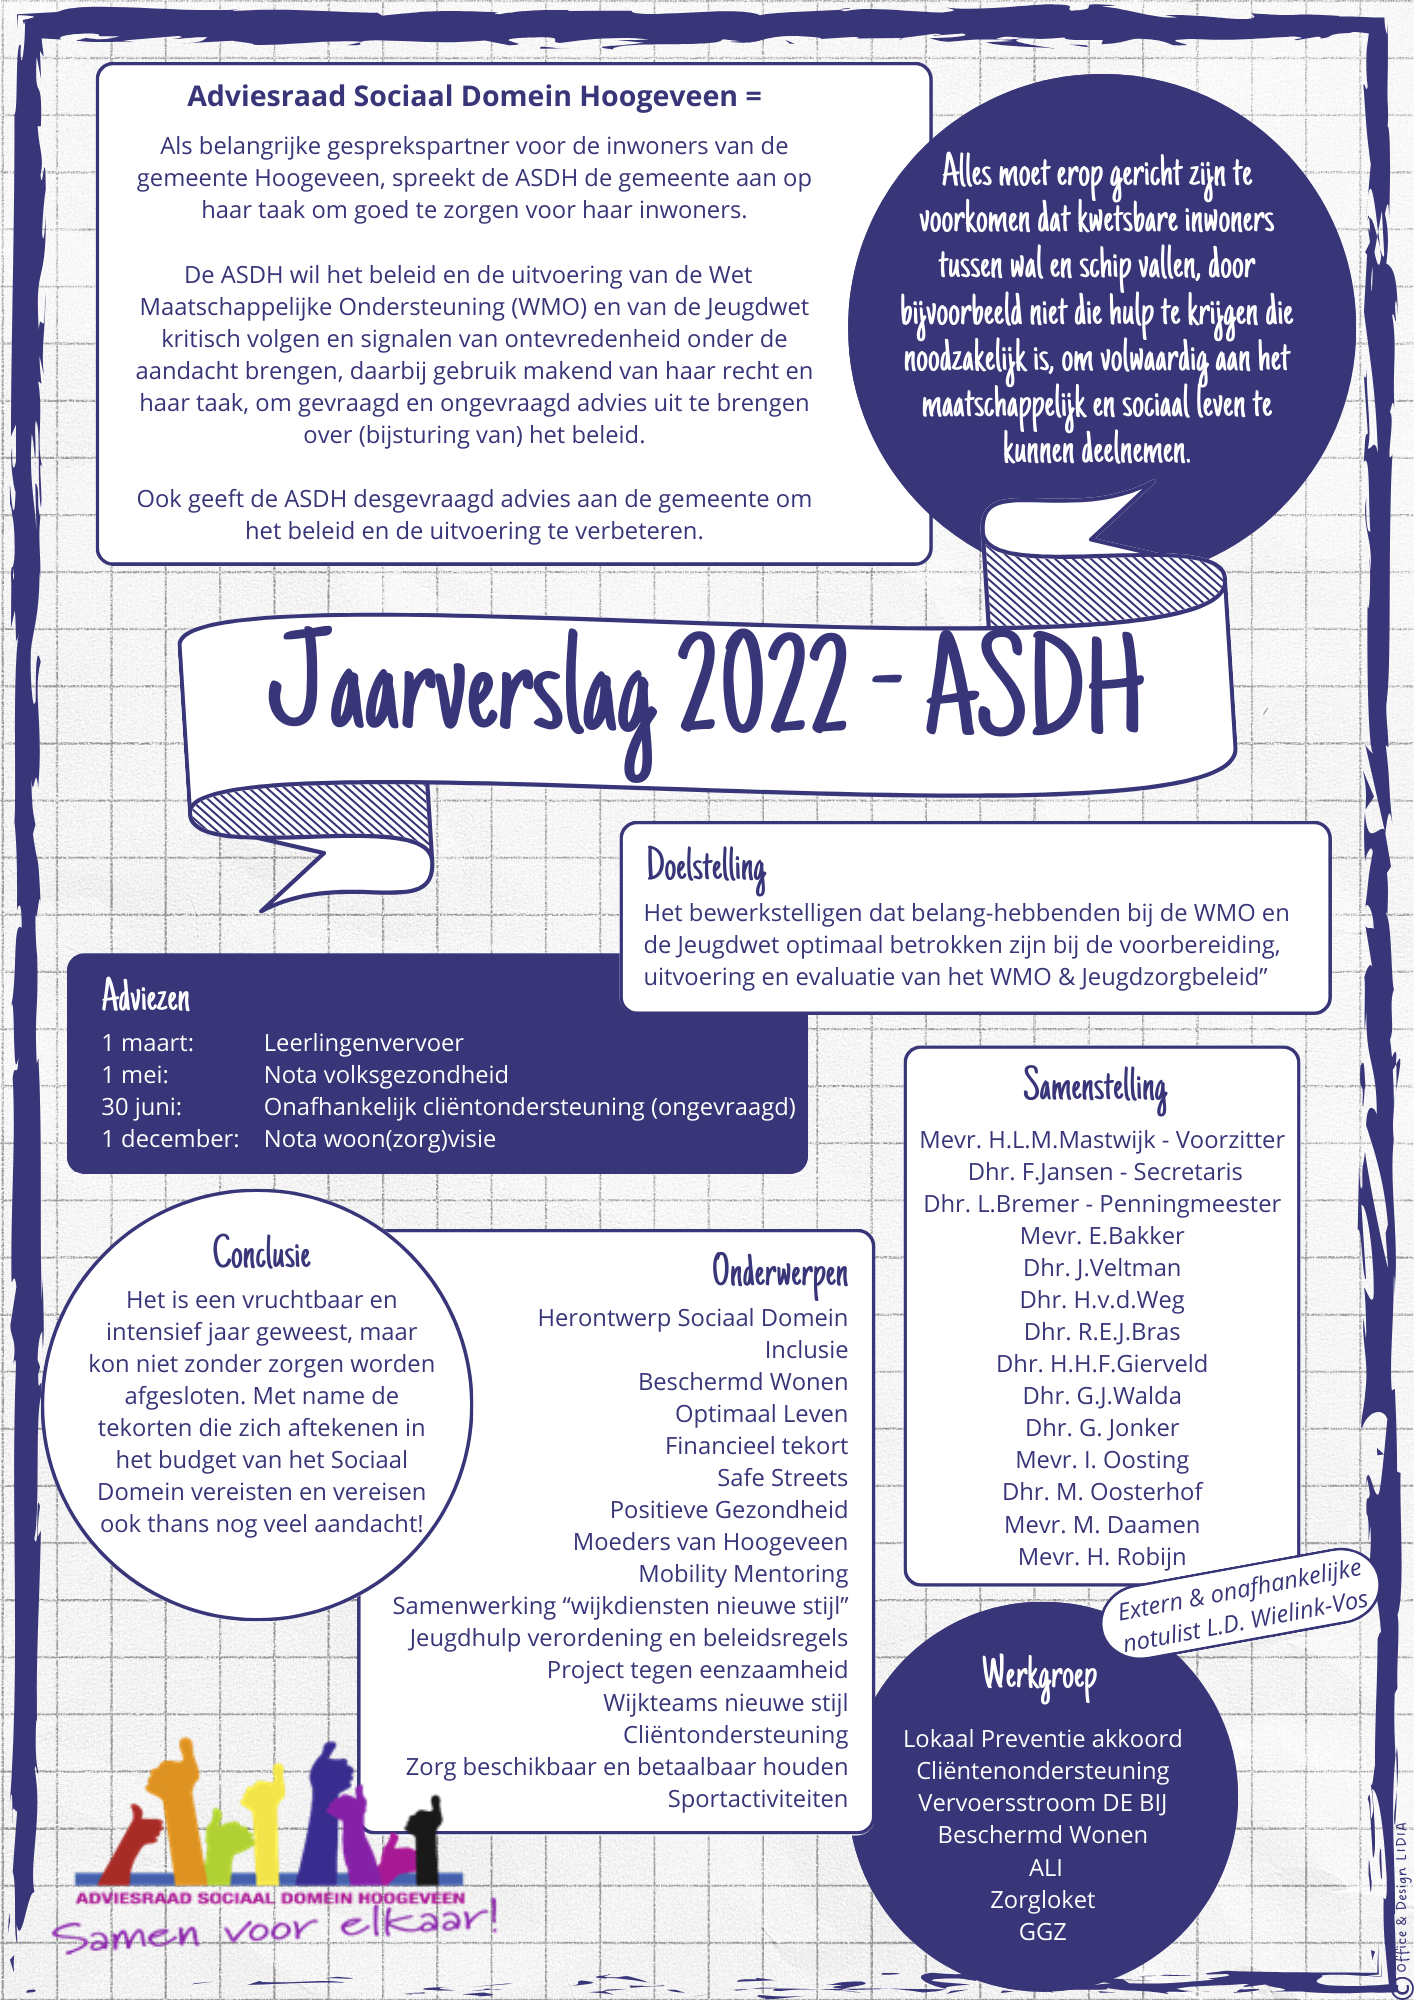 Adviesraad Sociaal Domein Hoogeveen =
Als belangrijke gesprekspartner voor de inwoners van de
gemeente Hoogeveen, spreekt de ASDH de gemeente aan op
haar taak om goed te zorgen voor haar inwoners.
De ASDH wil het beleid en de uitvoering van de Wet
Maatschappelijke Ondersteuning (WMO) en van de Jeugdwet
kritisch volgen en signalen van ontevredenheid onder de
aandacht brengen, daarbij gebruik makend van haar recht en
haar taak, om gevraagd en ongevraagd advies uit te brengen
over (bijsturing van) het beleid.
Ook geeft de ASDH desgevraagd advies aan de gemeente om
het beleid en de uitvoering te verbeteren.
Alles moet erop gericht zijn te
voorkomen dat kwetsbare inwoners
tussen wal en schip vallen, door
bijvoorbeeld niet die hulp te krijgen die
noodzakelijk is, om volwaardig aan het
maatschappelijk en sociaal leven te
kunnen deelnemen.
Jaarverslag 2022 - ASDH
Doelstelling
Het bewerkstelligen dat belang-hebbenden bij de WMO en
de Jeugdwet optimaal betrokken zijn bij de voorbereiding,
uitvoering en evaluatie van het WMO & Jeugdzorgbeleid”
Adviezen
1 maart: Leerlingenvervoer
1 mei: Nota volksgezondheid
30 juni: Onafhankelijk cliëntondersteuning (ongevraagd)
1 december: Nota woon(zorg)visie
Samenstelling
Mevr. H.L.M.Mastwijk - Voorzitter
Dhr. F.Jansen - Secretaris
Dhr. L.Bremer - Penningmeester
Mevr. E.Bakker
Dhr. J.Veltman
Dhr. H.v.d.Weg
Dhr. R.E.J.Bras
Dhr. H.H.F.Gierveld
Dhr. G.J.Walda
Dhr. G. Jonker
Mevr. I. Oosting
Dhr. M. Oosterhof
Mevr. M. Daamen
Mevr. H. Robijn
Extern & onafhankelijke
notulist L.D. Wielink-Vos
Conclusie
Het is een vruchtbaar en
intensief jaar geweest, maar
kon niet zonder zorgen worden
afgesloten. Met name de
tekorten die zich aftekenen in
het budget van het Sociaal
Domein vereisten en vereisen
ook thans nog veel aandacht!
Onderwerpen
Herontwerp Sociaal Domein
Inclusie
Beschermd Wonen
Optimaal Leven
Financieel tekort
Safe Streets
Positieve Gezondheid
Moeders van Hoogeveen
Mobility Mentoring
Samenwerking “wijkdiensten nieuwe stijl”
Jeugdhulp verordening en beleidsregels
Project tegen eenzaamheid
Wijkteams nieuwe stijl
Cliëntondersteuning
Zorg beschikbaar en betaalbaar houden
Sportactiviteiten
Werkgroep
Lokaal Preventie akkoord
Cliëntenondersteuning
Vervoersstroom DE BIJ
Beschermd Wonen
ALI
Zorgloket
GGZ
ADVIESRAAD SOCIAAL DOMEIN HOOGEVEEN
Samen voor elkaar!
© Office & Design LIDIA